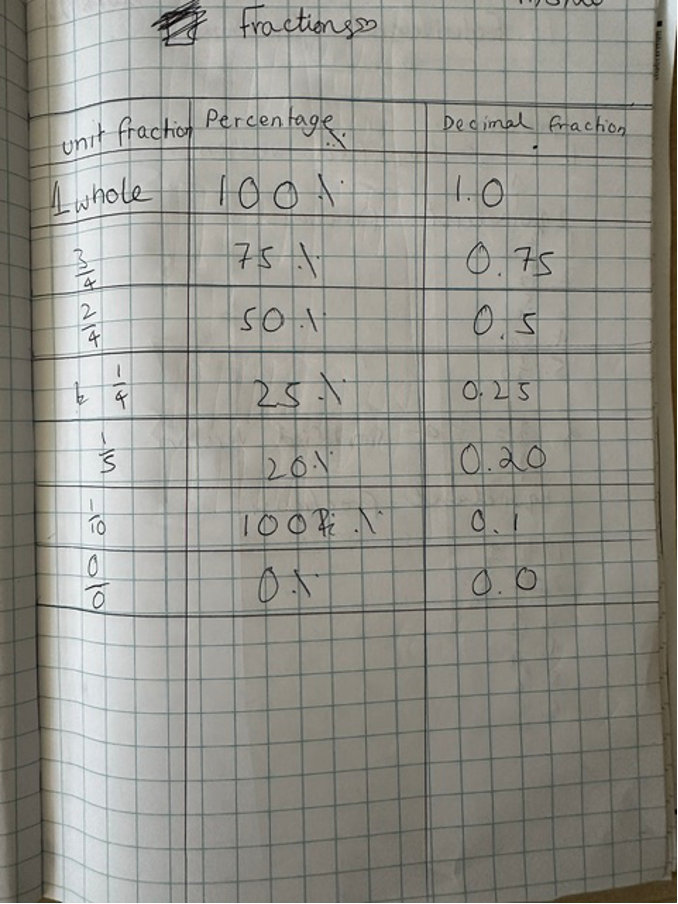 Fractions
unit fraction Percentage .\. Decimal fraction .
1 whole 100 .\. 1.0
3/4 75 .\. 0.75
2/4 50 .\. 0.5
1/4 25 .\. 0.25
1/5 20 .\. 0.20
1/10 100 .\. 0.1
0/0 0 .\. 0.0